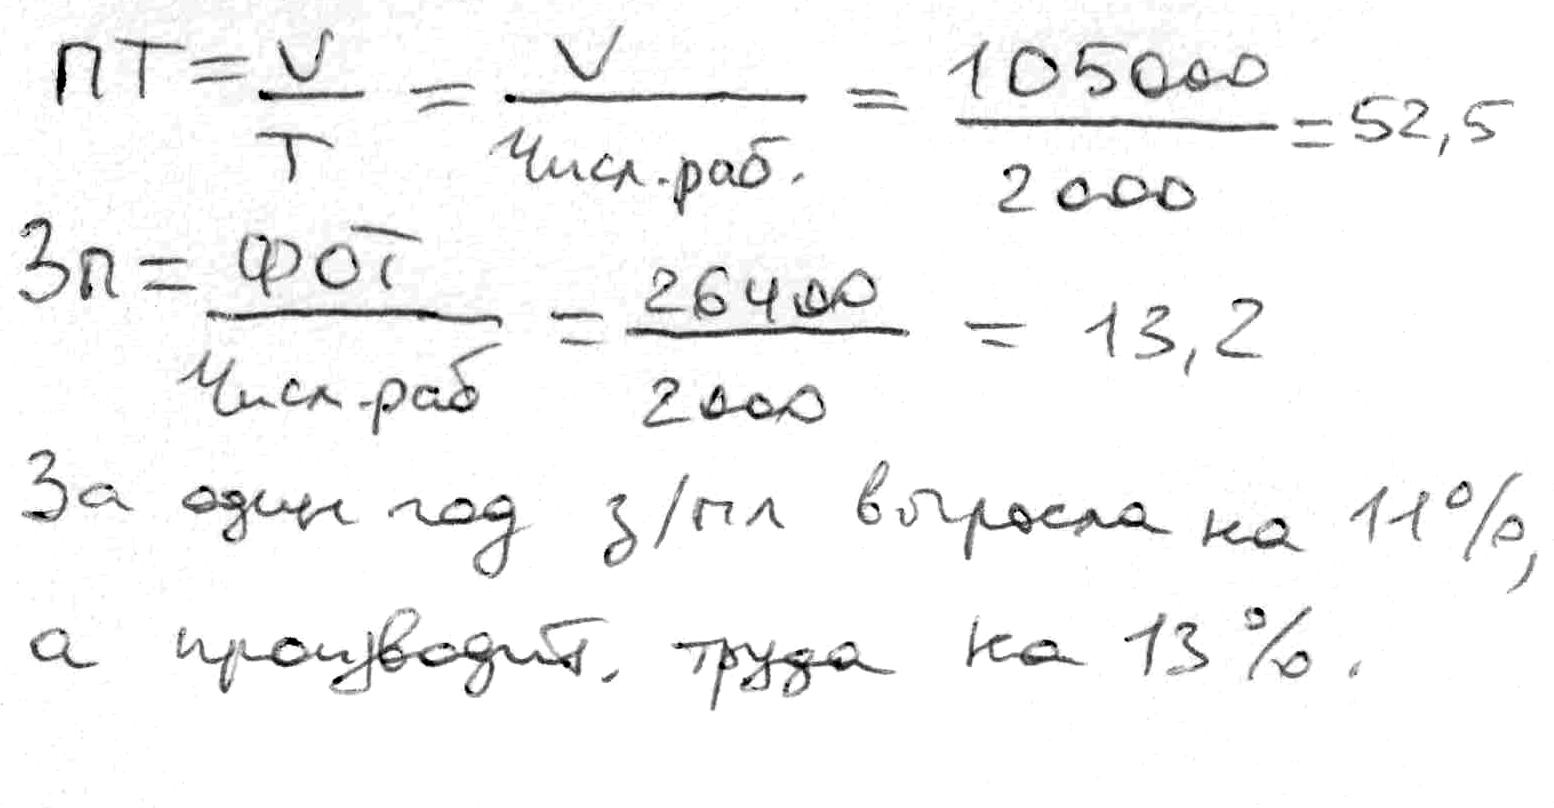 ПТ = V/T = V/Числ.раб. = 105000/2000 = 52,5
Зп = ФОТ/Числ.раб = 26400/2000 = 13,2
За один год з/пл выросла на 11%,
а производит. труда на 13%.